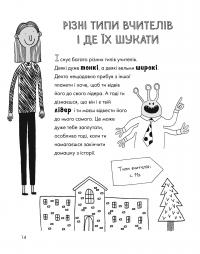 РІЗНІ ТИПИ ВЧИТЕЛІВ
І ДЕ ЇХ ШУКАТИ
Існує багато різних типів учителів.
Деякі дуже тонкі, а деякі вельми широкі.
Дехто нещодавно прибув з іншої
планети і хоче, щоб ти відвів
його до свого лідера. А тоді ти
дізнаєшся, що він і є твій
лідер і ти маєш відвести його
до нього самого. Це може
дуже тебе заплутати,
особливо тоді, коли ти
намагаєшся закінчити
домашку з історії.
Типи вчителів:
14